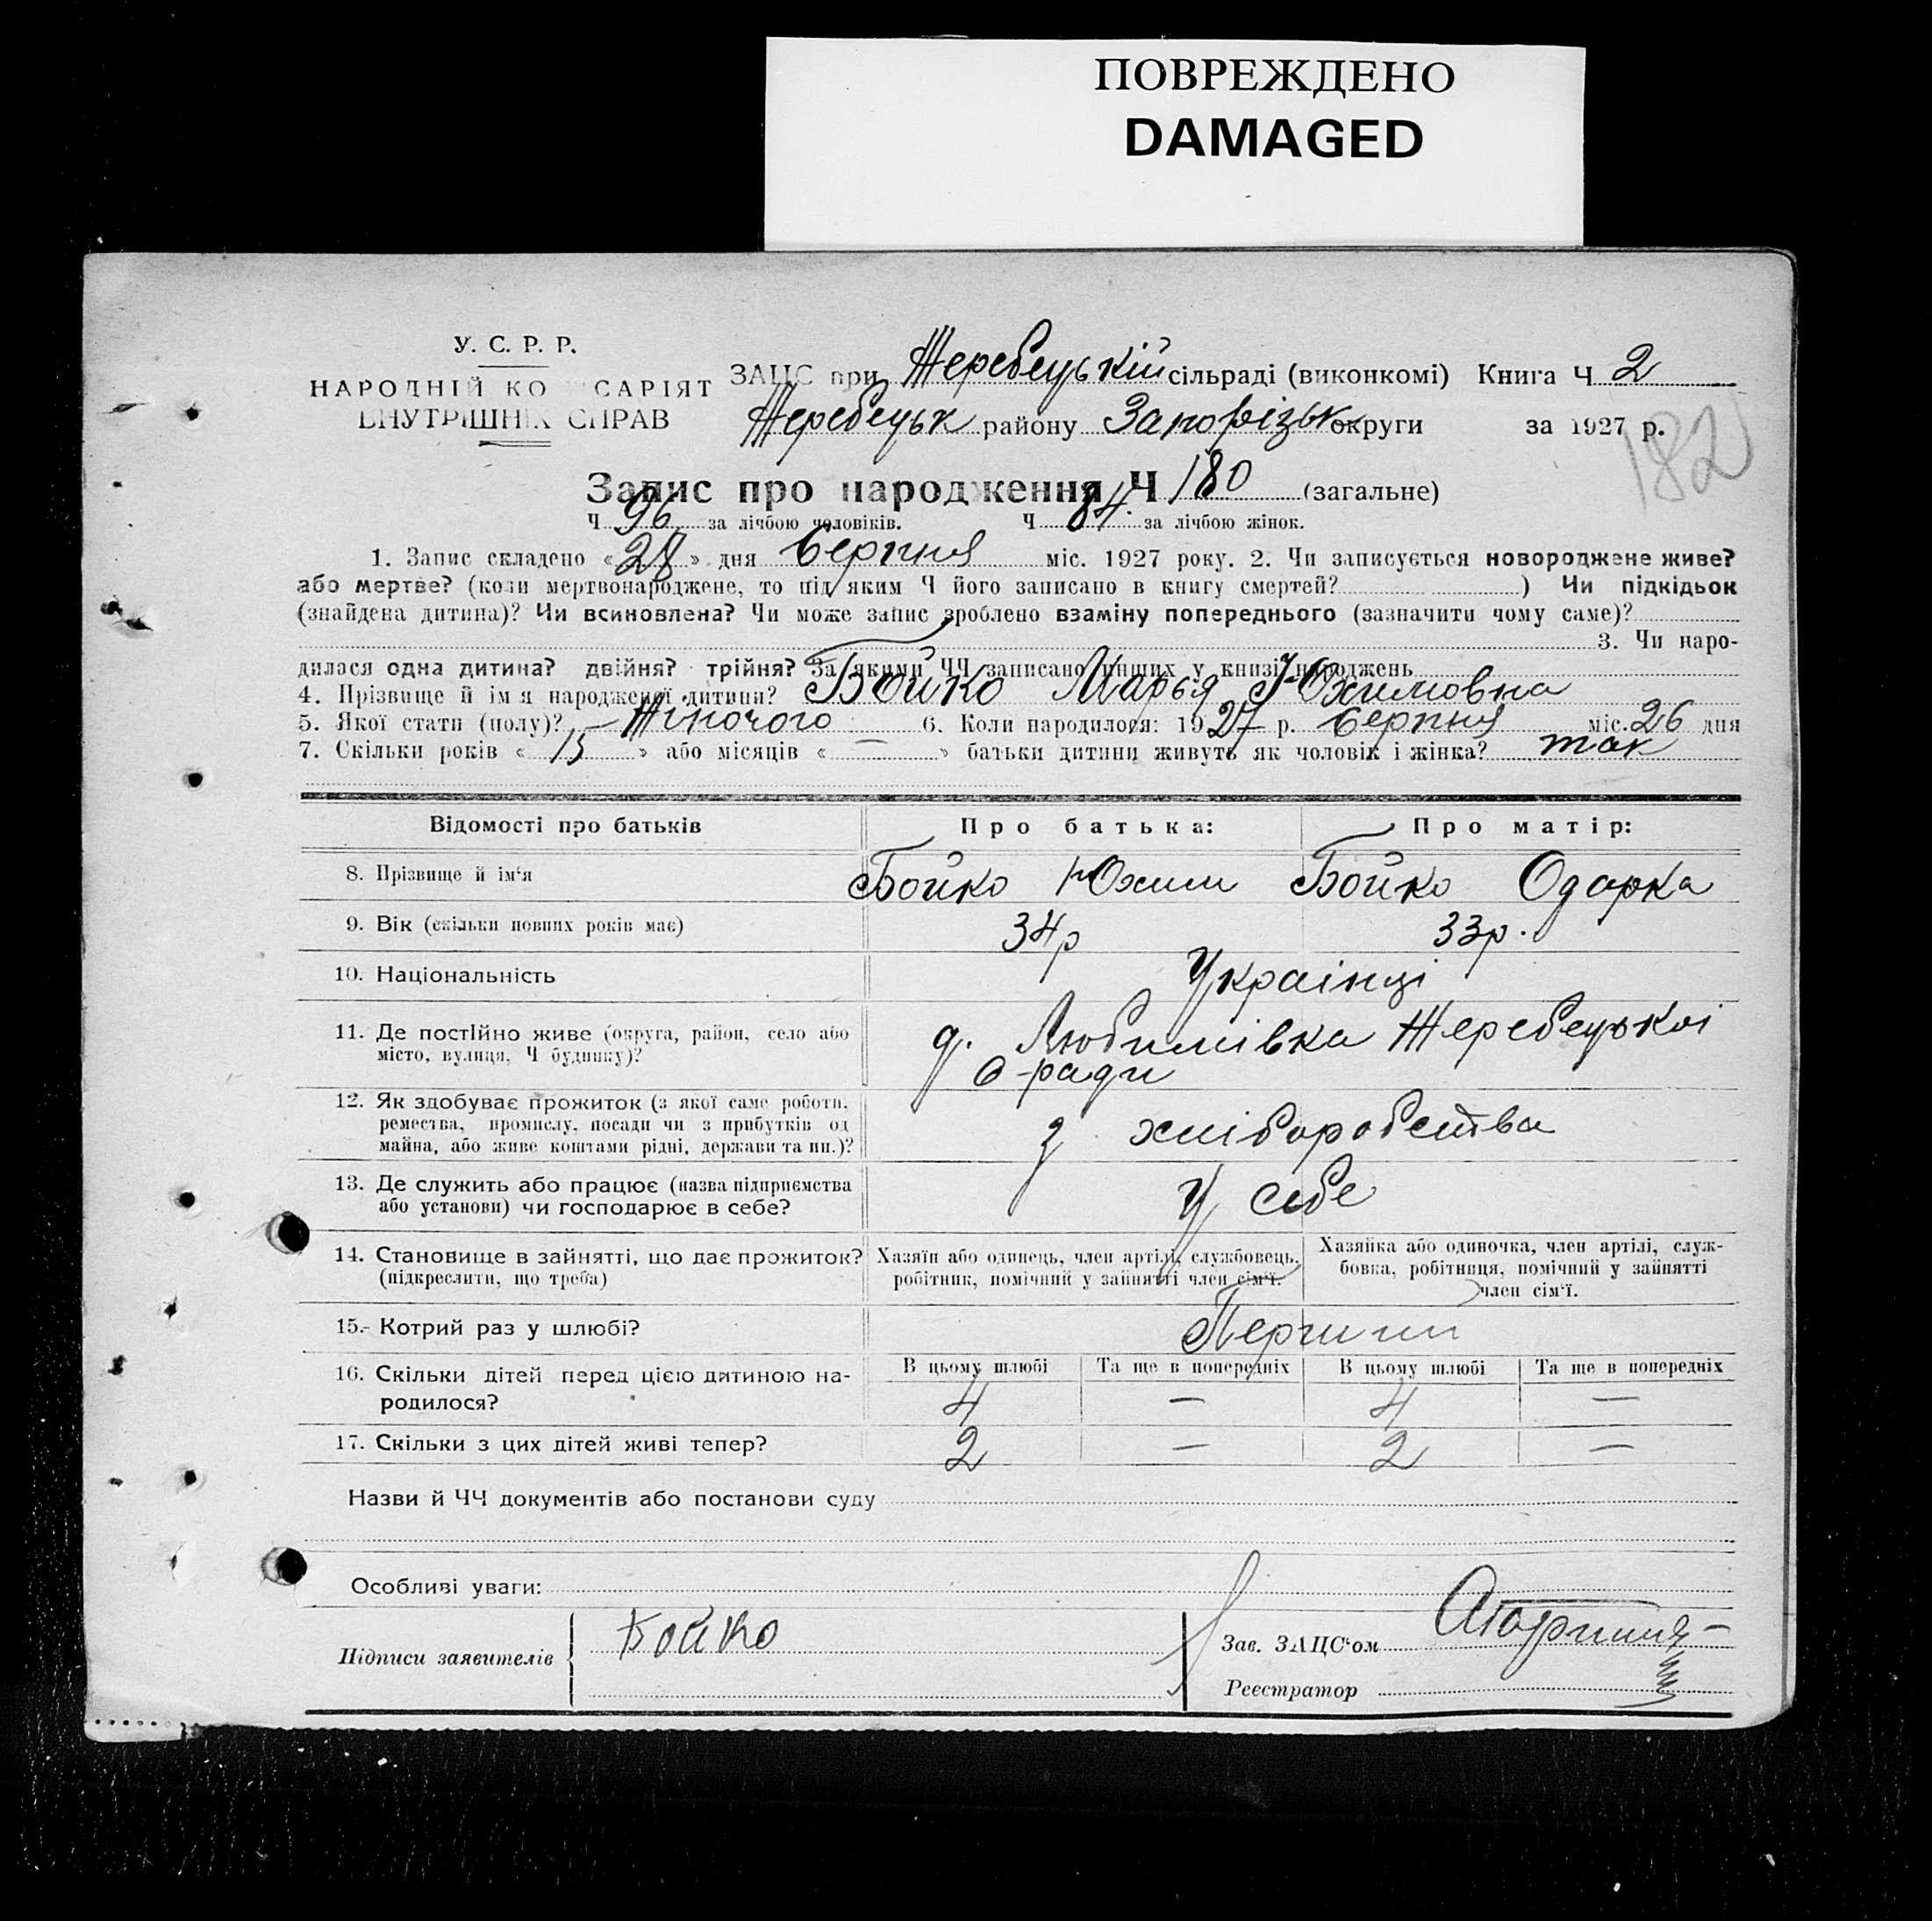 ПОВРЕЖДЕНО
DAMAGED
У. С. Р. Р.
НАРОДНІЙ КО САРІЯТ
ВНУТРІШНІХ СПРАВ
ЗАЦС при Жеребецькій сільраді (виконкомі) Книга Ч 2
Жеребецьк району Запорізьк округи за 1927 р.
182
Запис про народження Ч 180 (загальне)
Ч 96 за лічбою чоловіків. Ч 84. за лічбою жінок.
1. Запис складено «28» дня Серпня міс. 1927 року. 2. Чи записується новороджене живе?
або мертве? (коли мертвонароджене, то під яким Ч його записано в книгу смертей? ) Чи підкідьок
(знайдена дитина)? Чи всиновлена? Чи може запис зроблено взаміну попереднього (зазначити чому саме)?
3. Чи наро-
дилася одна дитина? двійня? трійня? За якими ЧЧ записано инших у книзі народжень
4. Прізвище й ім'я народженої дитини? Бойко Марья Юхимовна
5. Якої стати (полу)? Жіночого 6. Коли народилося: 1927 р. Серпня міс. 26 дня
7. Скільки років « 15 » або місяців « — » батьки дитини живуть як чоловік і жінка? так
Відомості про батьків Про батька: Про матір:
8. Прізвище й ім'я Бойко Юхим Бойко Одарка
9. Вік (скільки повних років має) 34 р 33 р.
10. Національність Українці
11. Де постійно живе (округа, район, село або
місто, вулиця, Ч будинку)? д. Любимівка Жеребецькоі
с-ради
12. Як здобуває прожиток (з якої саме роботи,
ремества, промислу, посади чи з прибутків од
майна, або живе коштами рідні, держави та ин.)? з хліборобства
13. Де служить або працює (назва підприємства
або установи) чи господарює в себе? У себе
14. Становище в зайнятті, що дає прожиток?
(підкреслити, що треба)
Хазяїн або одинець, член артілі, службовець,
робітник, помічний у зайнятті член сім'ї.
Хазяйка або одиночка, член артілі, служ-
бовка, робітниця, помічний у зайнятті
член сім'ї.
15. Котрий раз у шлюбі?
16. Скільки дітей перед цією дитиною на-
родилося?
В цьому шлюбі Та ще в попередніх В цьому шлюбі Та ще в попередніх
4 — 4 —
17. Скільки з цих дітей живі тепер? 2 — 2 —
Назви й ЧЧ документів або постанови суду
Особливі уваги:
Підписи заявителів Бойко
Зав. ЗАЦС'ом
Реєстратор